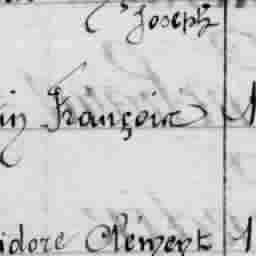 Joseph
in Françoise 1
idore Clément 1